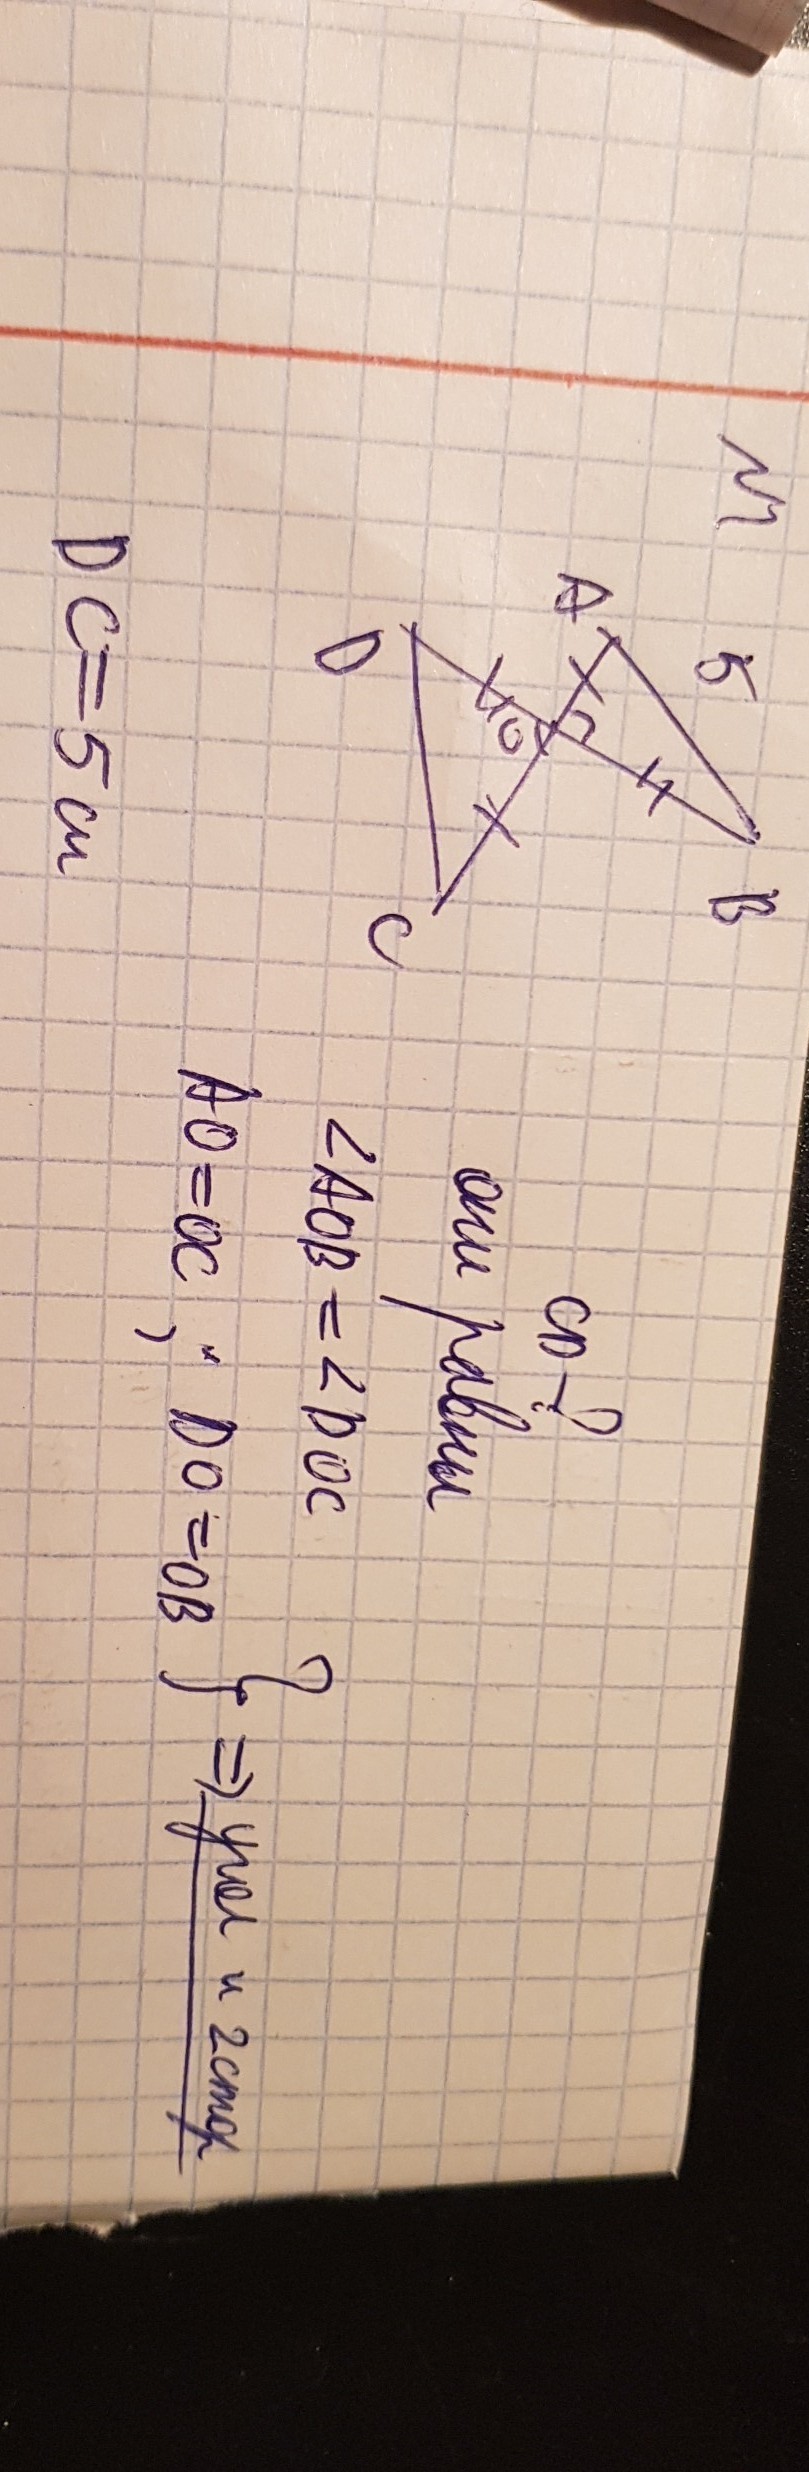 N1
5
A
B
O
D
C
CD - ?
они равны
∠AOB = ∠DOC
AO = OC, и DO = OB } => угол и 2 стор
DC = 5 см